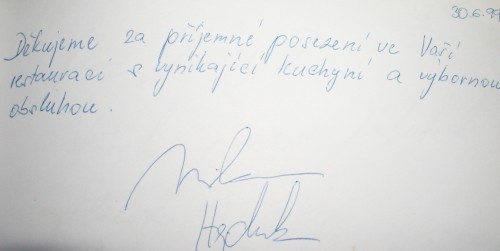 30.6.99
Děkujeme za příjemné posezení ve Vaší
restauraci s vynikající kuchyní a výbornou
obsluhou.
Milan